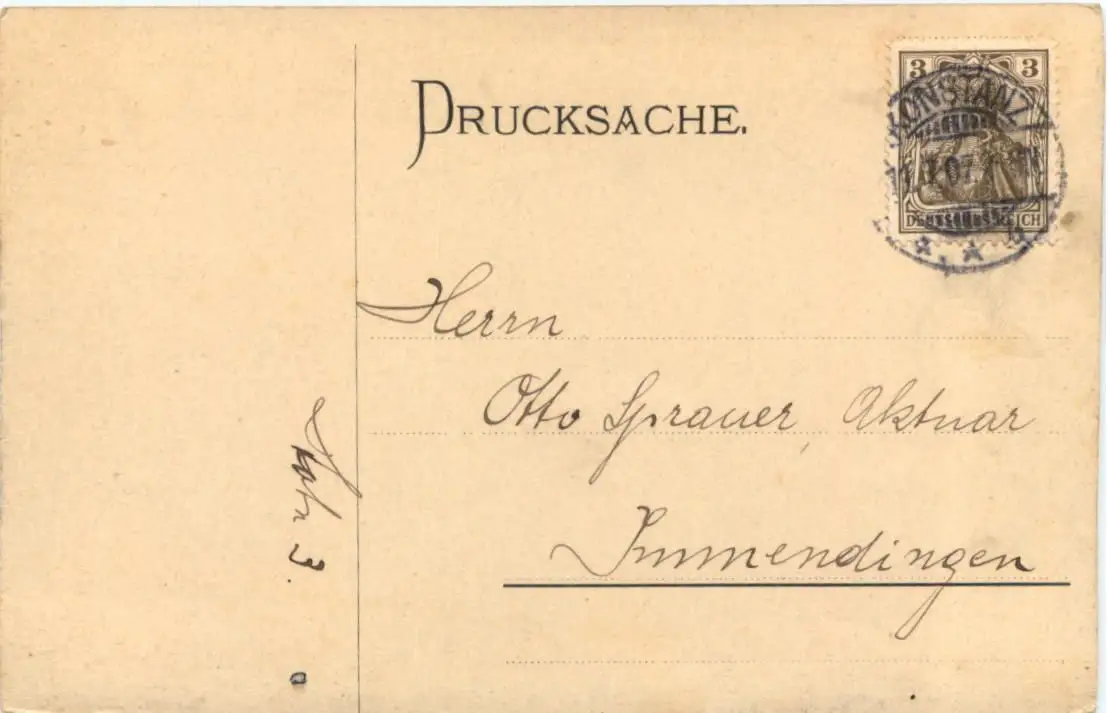 DRUCKSACHE.
3 3
KONSTANZ
07
DEUTSCHES REICH
Herrn
Otto Sprauer, Aktuar
Immendingen
3.